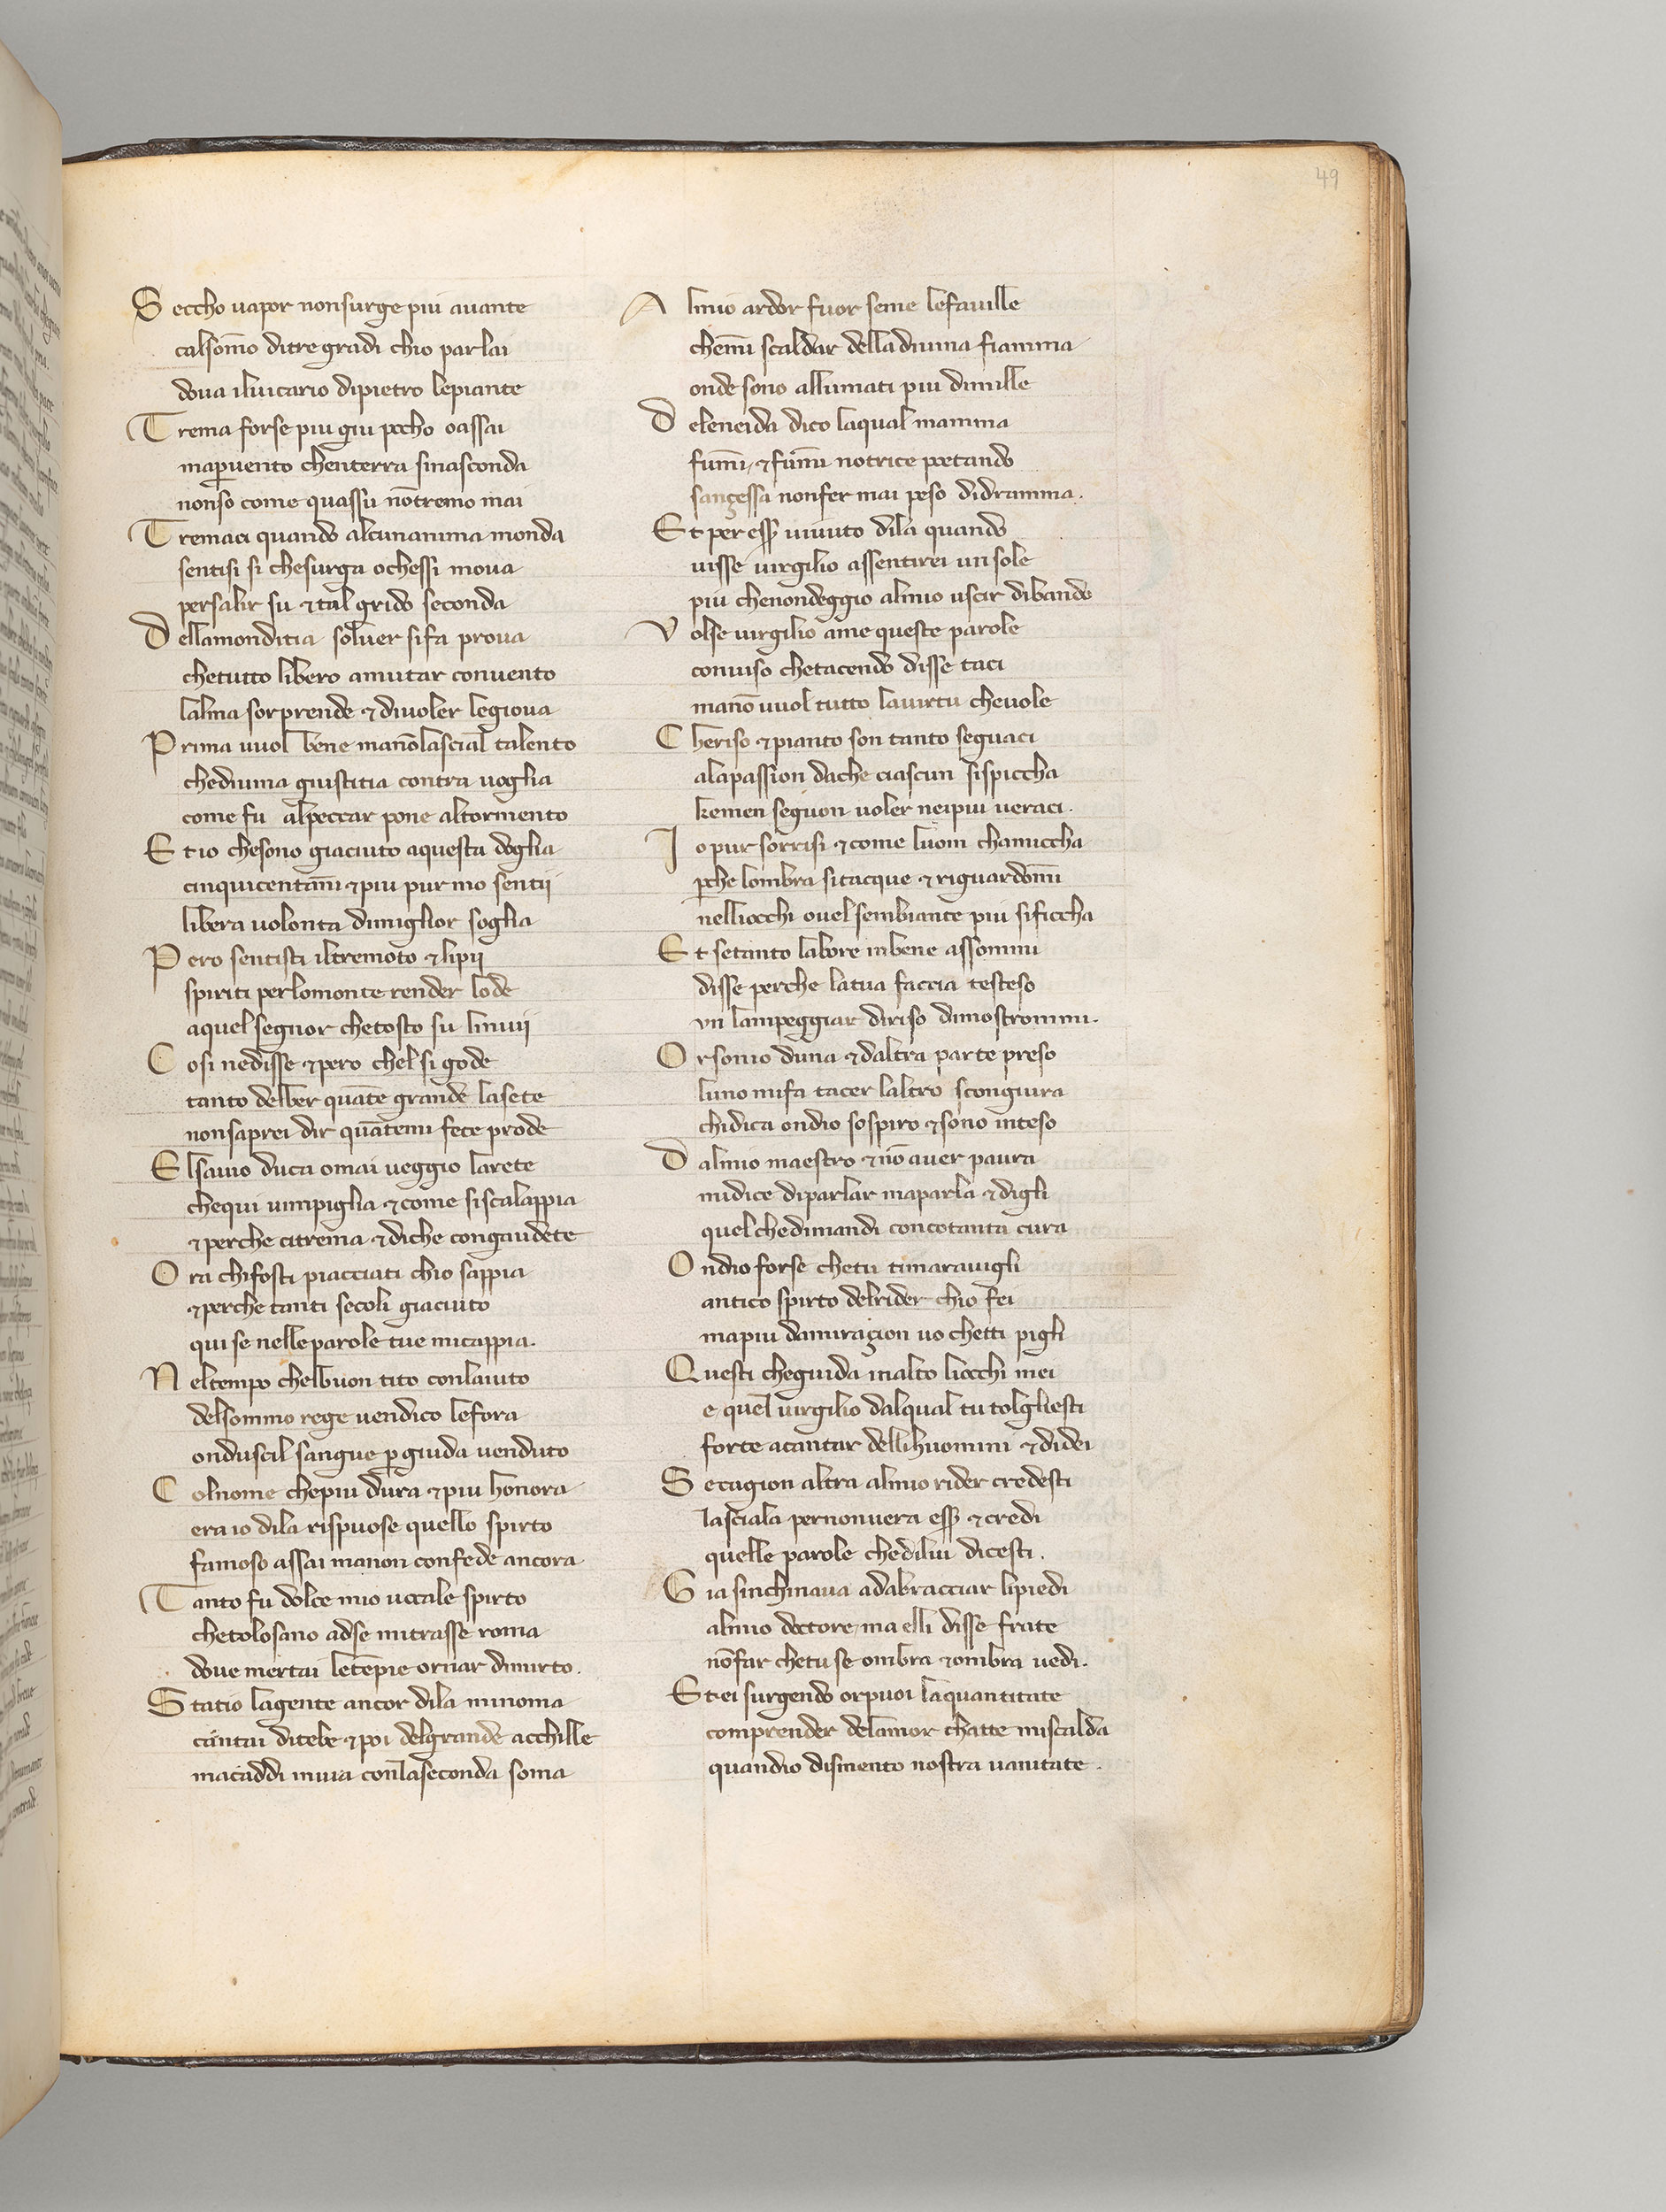 49
Seccho uapor nonsurge piu auante
calsomo ditregradi chio parlai
doua iluicario dipietro lepiante
Trema forse piu giu pocho oassai
maꝑuento chenterra sinasconda
nonso come quassu nōtremo mai
Tremaci quando alcunanima monda
sentisi si chesurga ochessi moua
persalir su ⁊tal grido seconda
Dellamonditia soluer sifa proua
chetutto libero amutar conuento
lalma sorprende ⁊diuoler legioua
Prima uuol bene manōlascial talento
chediuina giustitia contra uoglia
come fu alpeccar pone altormento
Etio chesono giaciuto aquesta doglia
cinquicentāni ⁊piu pur mo sentij
libera uolonta dimiglior soglia
Pero sentisti iltremoto ⁊lipij
spiriti perlomonte render lode
aquel segnor chetosto su linuij
Cosi nedisse ⁊pero chel si gode
tanto delber quāte grande lasete
nonsaprei dir quātemi fece prode
Elsauio duca omai ueggio larete
chequi uimpiglia ⁊come siscalappia
⁊perche citrema ⁊diche congaudete
Ora chifosti piacciati chio sappia
⁊perche tanti secoli giaciuto
qui se nelleparole tue micappia.
Neltempo chelbuon tito conlaiuto
delsommo rege uendico lefora
onduscil sangue ꝑ giuda uenduto
Colnome chepiu dura ⁊piu honora
era io dila rispuose quello spirto
famoso assai manon confede ancora
Tanto fu dolce mio uocale spirto
chetolosano adse mitrasse roma
doue mertai letēpie ornar dimirto.
Statio lagente ancor dila minoma
cantai ditebe ⁊poi delgrande acchille
macaddi inuia conlaseconda soma
Almio ardor fuor seme lefauille
chemi scaldar delladiuina fiamma
onde sono allumati piu dimille
Deleneida dico laqual mamma
fumi ⁊fūmi notrice poetando
sançessa nonfer mai peso didramma.
Et per esser uiuuto dila quando
uisse uirgilio assentirei un sole
piu chenondeggio almio uscir dibando
Volse uirgilio ame queste parole
conuiso chetacendo disse taci
manō uuol tutto lauirtu cheuole
Cheriso ⁊pianto son tanto seguaci
alapassion dache ciascun sispiccha
kemen seguon uoler neipiu ueraci.
Io pur sorrisi ⁊come luom chamiccha
ꝑche lombra sitacque ⁊riguardōmi
nelliocchi ouel sembiante piu sificcha
Et setanto labore inbene assommi
disse perche latua faccia testeso
vn lampeggiar diriso dimostrommi.
Orsonio duna ⁊daltra parte preso
luno mifa tacer laltro scongiura
chidica ondio sospiro ⁊sono inteso
Dalmio maestro ⁊nō auer paura
midice diparlar maparla ⁊digli
quel chedimandi concotanta cura
Ondio forse chetu timarauigli
antico spirto delrider chio fei
mapiu damiraçion uo chetti pigli
Questi cheguida inalto liocchi mei
e quel uirgilio dalqual tu tolghesti
forte acantar dellihuomini ⁊didei
Secagion altra almio rider credesti
lasciala pernonuera esser ⁊credi
quelle parole chedilui dicesti.
Gia sinchinaua adabracciar lipiedi
almio doctore, ma elli disse frate
nōfar chetu se ombra ⁊ombra uedi.
Et ei surgendo orpuoi laquantitate
comprender delamor chatte miscalda
quandio dismento nostra uanitate.